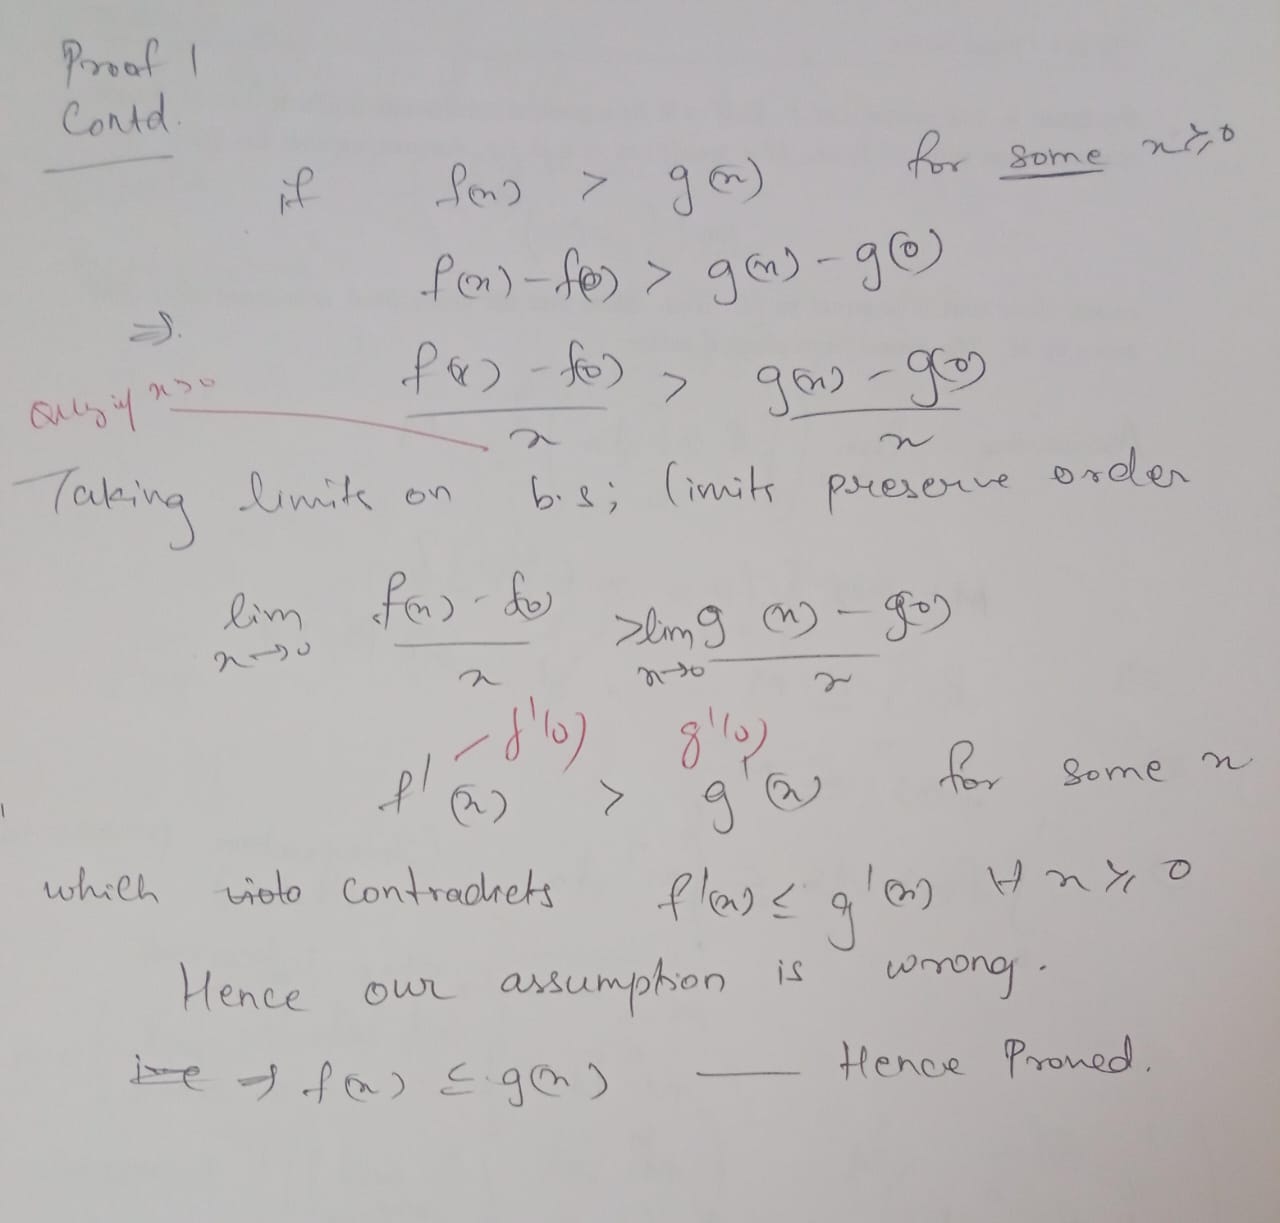 Proof 1
Contd.
if f(x) > g(x) for some x ≥ 0
f(x) - f(0) > g(x) - g(0)
⇒
only if x>0
f(x) - f(0) / x > g(x) - g(0) / x
Taking limits on b.s; limits preserve order
lim x→0 f(x) - f(0) / x > lim x→0 g(x) - g(0) / x
f'(0) g'(0)
f'(x) > g'(x) for some x
which violo contradicts f'(x) ≤ g'(x) ∀ x ≥ 0
Hence our assumption is wrong.
i.e ⇒ f(x) ≤ g(x) — Hence Proved.